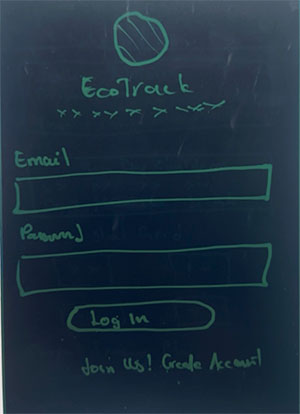 EcoTrack
Email
Password
Log In
Join Us! Create Account